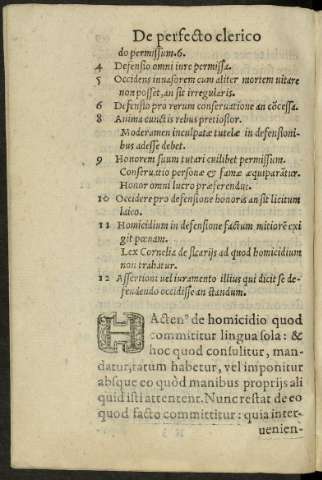 De perfecto clerico
do permissum. 6.
4 Defensio omni iure permissa.
5 Occidens inuasorem cum aliter mortem uitare
non posset, an sit irregularis.
6 Defensio pro rerum conseruatione an cōcessa.
8 Anima cunctis rebus pretiosior.
Moderamen inculpatæ tutelæ in defensioni-
bus adesse debet.
9 Honorem suum tutari cuilibet permissum.
Conseruatio personæ & famæ æquiparātur.
Honor omni lucro præferendus.
10 Occidere pro defensione honoris an sit licitum
laico.
11 Homicidium in defensione factum mitiorē exi
git pœnam.
Lex Cornelia de sicarijs ad quod homicidium
non trahatur.
12 Assertioni uel iuramento illius qui dicit se de-
fendendo occidisse an standum.
HActenꝰ de homicidio quod
committitur lingua sola: &
hoc quod consulitur, man-
datur, ratum habetur, vel imponitur
absque eo quòd manibus proprijs ali
quid isti attentent. Nunc restat de eo
quod facto committitur: quia inter-
uenien-